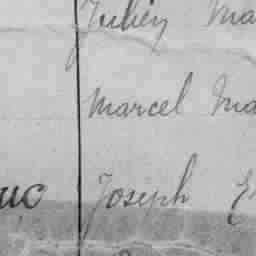 Julien Ma
Marcel Ma
uc Joseph E